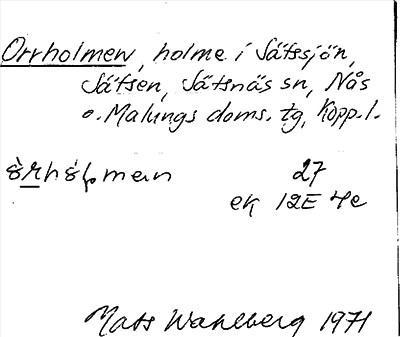 Orrholmen, holme i Sätssjön,
Sätsen, Sätsnäs sn, Nås
o. Malungs doms. tg, Kopp. l.
27
ek 12E 4e
Mats Wahlberg 1971